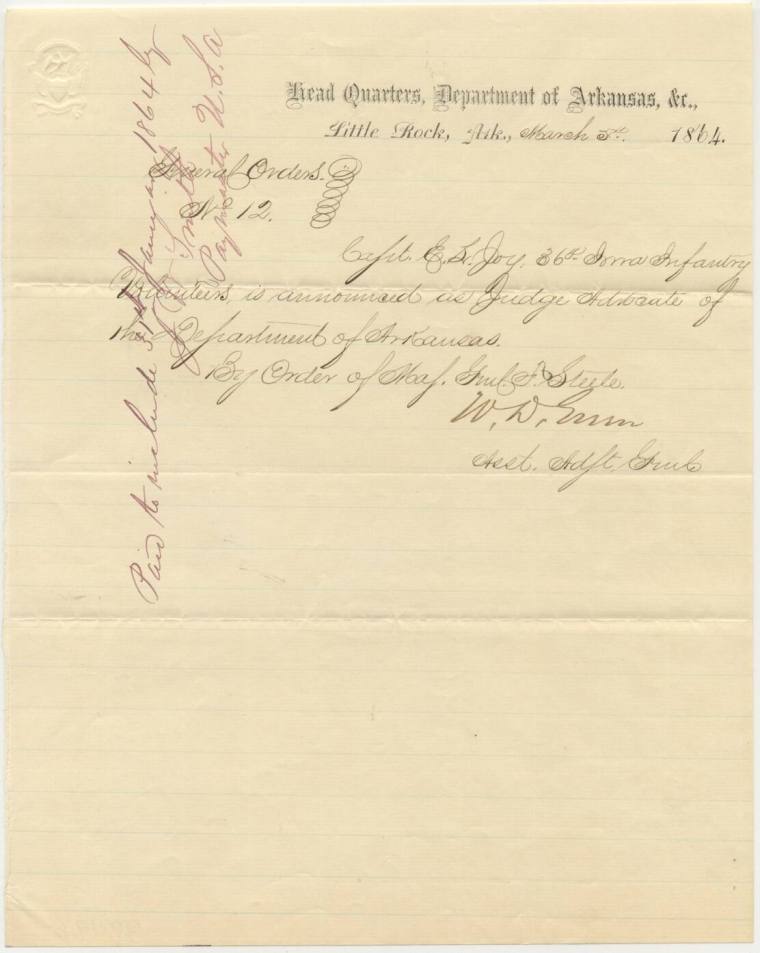 Head Quarters, Department of Arkansas, &c.,
Little Rock, Ark., March 5th. 1864.
General Orders.
No 12.
Capt. E. S. Joy. 36th Iowa Infantry
Volunteers, is announced as Judge Advocate of
the Department of Arkansas.
By Order of Maj. Genl. F. Steele.
W. D. Green
Asst. Adjt. Genl
Paid to include 31st January 1864 by
Smith
Paymaster U.S.A